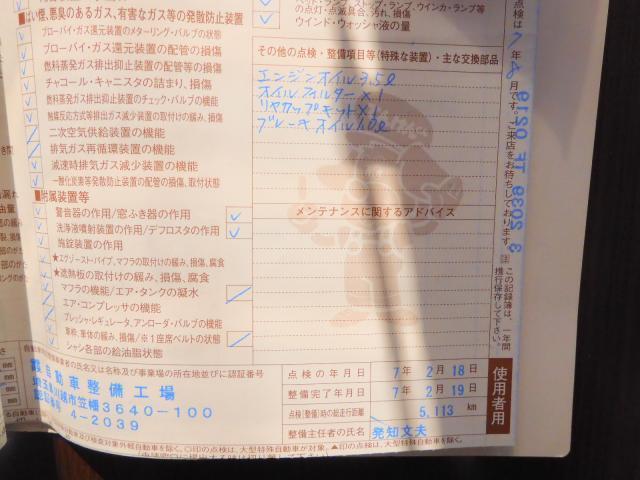 ■ばい煙、悪臭のあるガス、有害なガス等の発散防止装置
ブローバイ・ガス還元装置のメターリング・バルブの状態
ブローバイ・ガス還元装置の配管の損傷
燃料蒸発ガス排出抑止装置の配管等の損傷
チャコール・キャニスタの詰まり、損傷
燃料蒸発ガス排出抑止装置のチェック・バルブの機能
触媒反応方式等排出ガス減少装置の取付けの緩み、損傷
二次空気供給装置の機能
排気ガス再循環装置の機能
減速時排気ガス減少装置の機能
一酸化炭素等発散防止装置の配管の損傷、取付状態
■附属装置等
警音器の作用/窓ふき器の作用
洗浄液噴射装置の作用/デフロスタの作用
施錠装置の作用
★エグゾーストパイプ、マフラの取付けの緩み、損傷、腐食
★遮熱板の取付けの緩み、損傷、腐食
マフラの機能/エア・タンクの凝水
エア・コンプレッサの機能
プレッシャ・レギュレータ、アンローダ・バルブの機能
車枠、車体の緩み、損傷/※1座席ベルトの状態
シャシ各部の給油脂状態
の点灯・点滅具合、汚れ、損傷
ウインド・ウォッシャ液の量
その他の点検・整備項目等(特殊な装置)・主な交換部品
エンジンオイル3.5ℓ
オイルフィルター×1
リヤカップキット×1
ブレーキオイル1.0ℓ
メンテナンスに関するアドバイス
事業者の氏名又は名称及び事業場の所在地並びに認証番号
自動車整備工場
川越市笠幡3640-100
4-2039
点検の年月日 7年 2月 18日
整備完了年月日 7年 2月 19日
点検(整備)時の総走行距離 5,113 km
整備主任者の氏名 発知文夫
使用者用
点検は7年8月です。ご来店をお待ちしております。
この記録簿は、一年間携行保存して下さい。
3 2039 TF 0219